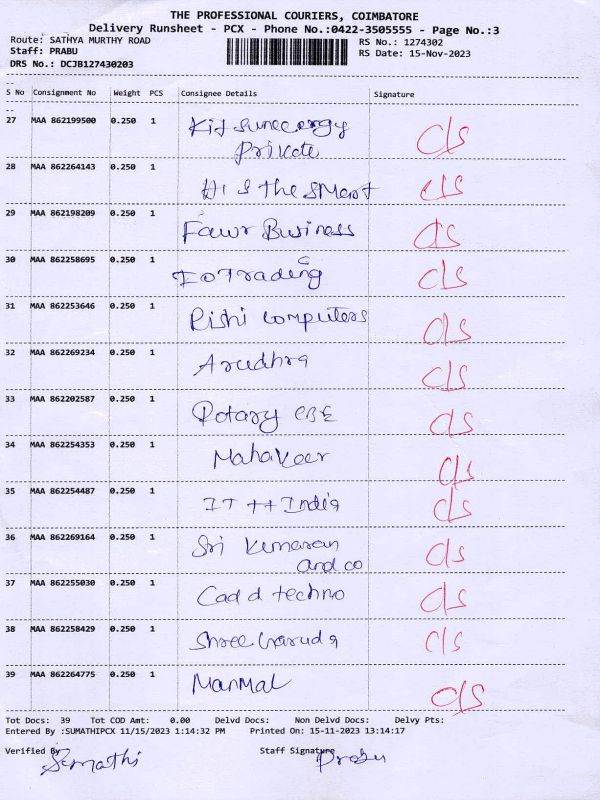 THE PROFESSIONAL COURIERS, COIMBATORE
Delivery Runsheet - PCX - Phone No.:0422-3505555 - Page No.:3
Route: SATHYA MURTHY ROAD RS No.: 1274302
Staff: PRABU RS Date: 15-Nov-2023
DRS No.: DCJB127430203
S No Consignment No Weight PCS Consignee Details Signature
27 MAA 862199500 0.250 1 Private C/S
28 MAA 862264143 0.250 1 HI S the SMart C/S
29 MAA 862198209 0.250 1 Fawr Business C/S
30 MAA 862258695 0.250 1 Trading C/S
31 MAA 862253646 0.250 1 Rishi Computers C/S
32 MAA 862269234 0.250 1 Arudhra C/S
33 MAA 862202587 0.250 1 Rotary CBE C/S
34 MAA 862254353 0.250 1 Mahaveer C/S
35 MAA 862254487 0.250 1 IT ++ India C/S
36 MAA 862269164 0.250 1 Sri Kumaran C/S
and co
37 MAA 862255030 0.250 1 Cad d techno C/S
38 MAA 862258429 0.250 1 Shree Garuda C/S
39 MAA 862264775 0.250 1 ManMal C/S
Tot Docs: 39 Tot COD Amt: 0.00 Delvd Docs: Non Delvd Docs: Delvy Pts:
Entered By :SUMATHIPCX 11/15/2023 1:14:32 PM Printed On: 15-11-2023 13:14:17
Verified By Sumathi Staff Signature Prabu